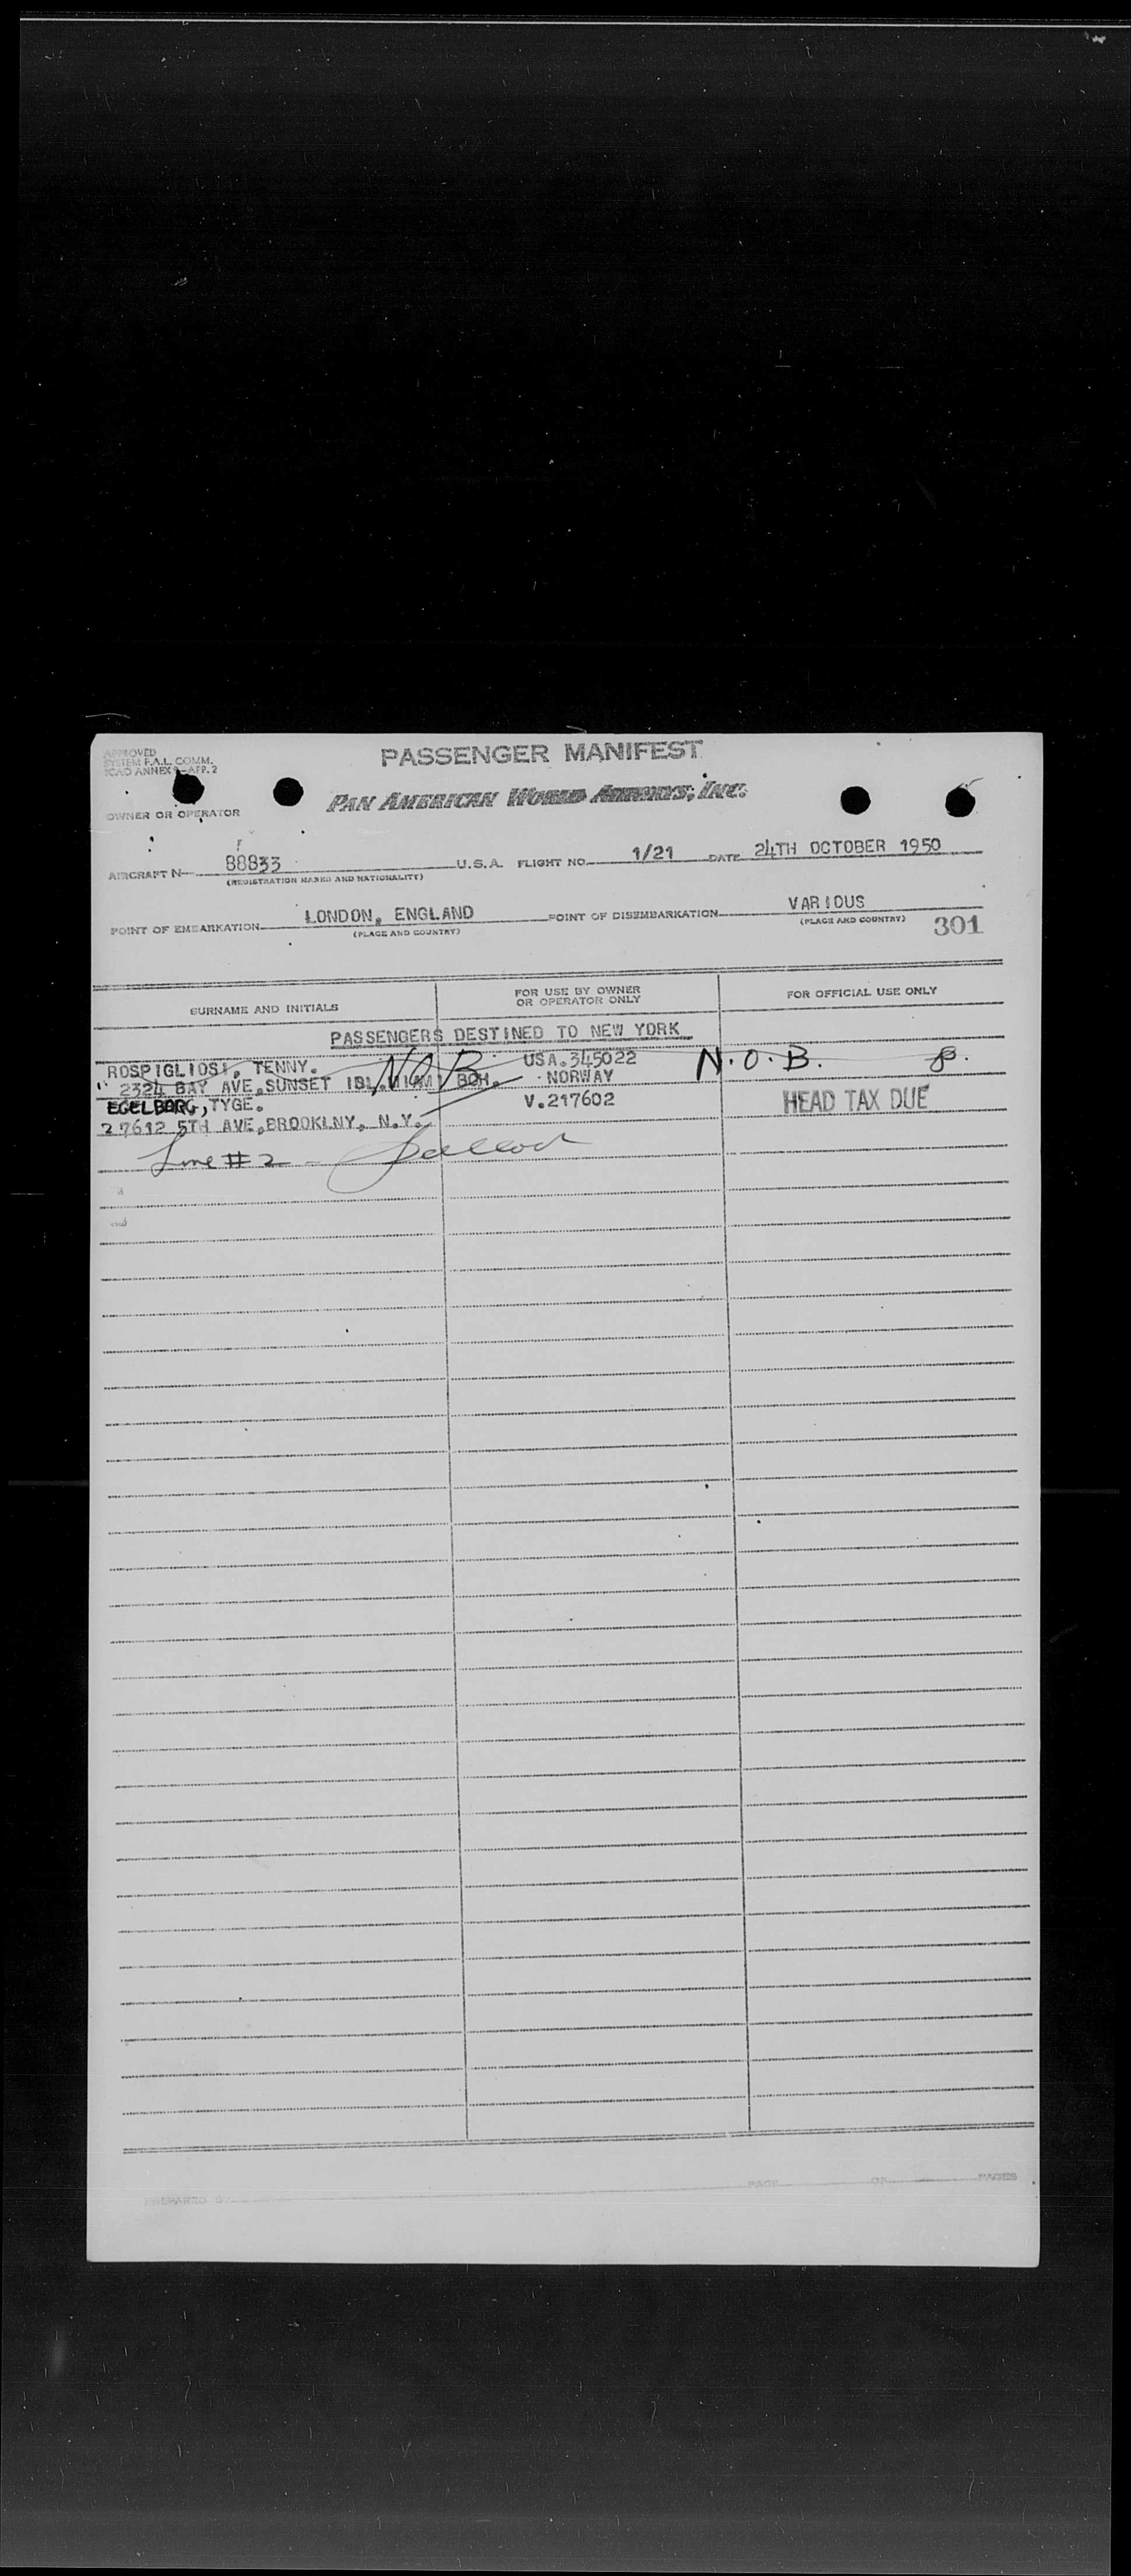 APPROVED
SYSTEM F.A.L. COMM.
ICAO ANNEX 9—APP. 2
PASSENGER MANIFEST
PAN AMERICAN WORLD AIRWAYS, INC.
OWNER OR OPERATOR
AIRCRAFT N— 88833 U.S.A. FLIGHT NO. 1/21 DATE 24TH OCTOBER 1950
(REGISTRATION MARKS AND NATIONALITY)
POINT OF EMBARKATION LONDON, ENGLAND POINT OF DISEMBARKATION VARIOUS
(PLACE AND COUNTRY) (PLACE AND COUNTRY)
301
SURNAME AND INITIALS FOR USE BY OWNER OR OPERATOR ONLY FOR OFFICIAL USE ONLY
PASSENGERS DESTINED TO NEW YORK
ROSPIGLIOSI, TENNY. NOB USA.345022 N.O.B.
2324 BAY AVE,SUNSET ISL.MIAMI BCH. NORWAY
EGELBORG, TYGE. V.217602 HEAD TAX DUE
2 7612 5TH AVE,BROOKLNY, N.Y.
Line # 2
PREPARED BY PAGE OF PAGES